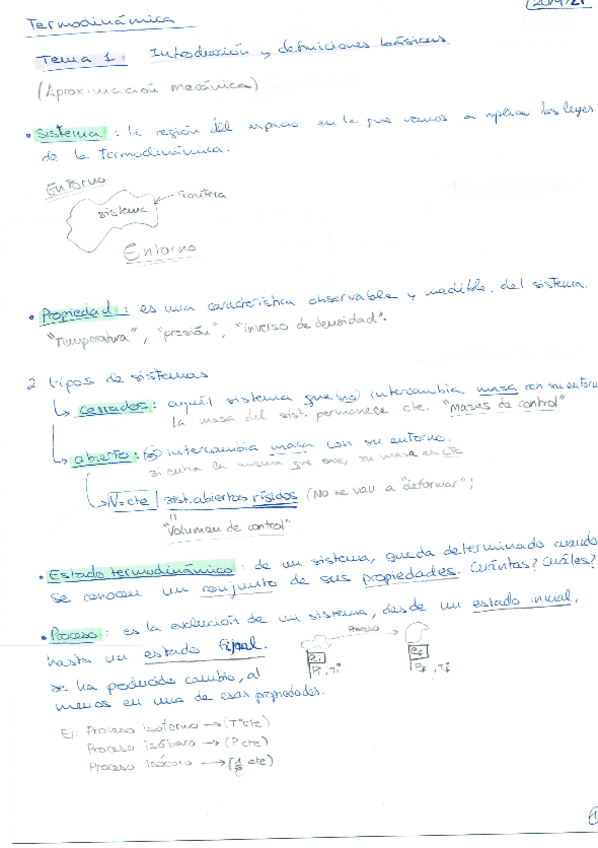 Termodinámica
Tema 1: Introducción y definiciones básicas.
(Aproximación mecánica)
• Sistema: la región del espacio en la que vamos a aplicar las leyes
de la termodinámica.
Entorno
sistema
frontera
Entorno
• Propiedad: es una característica observable y medible del sistema.
"Temperatura", "presión", "inverso de densidad".
2 tipos de sistemas
↳ cerrados: aquél sistema que (no) intercambia masa con su entorno
la masa del sist. permanece cte. "Masas de control"
↳ abierto: (sí) intercambia masa con su entorno.
si entra la misma que sale, su masa es cte
↳ V=cte | sist. abiertos rígidos (No se van a "deformar";
"
"Volumen de control"
• Estado termodinámico: de un sistema, queda determinado cuando
se conocen un conjunto de sus propiedades. Cuántas? Cuáles?
• Proceso: es la evolución de un sistema, desde un estado inicial,
hasta un estado final.
Proceso
ei
ef
Pi, Ti
Pf, Tf
se ha producido cambio, al
menos en una de esas propiedades.
Ej: Proceso isotermo → (Tª cte)
Proceso isóbaro → (P cte)
Proceso isócoro →
1